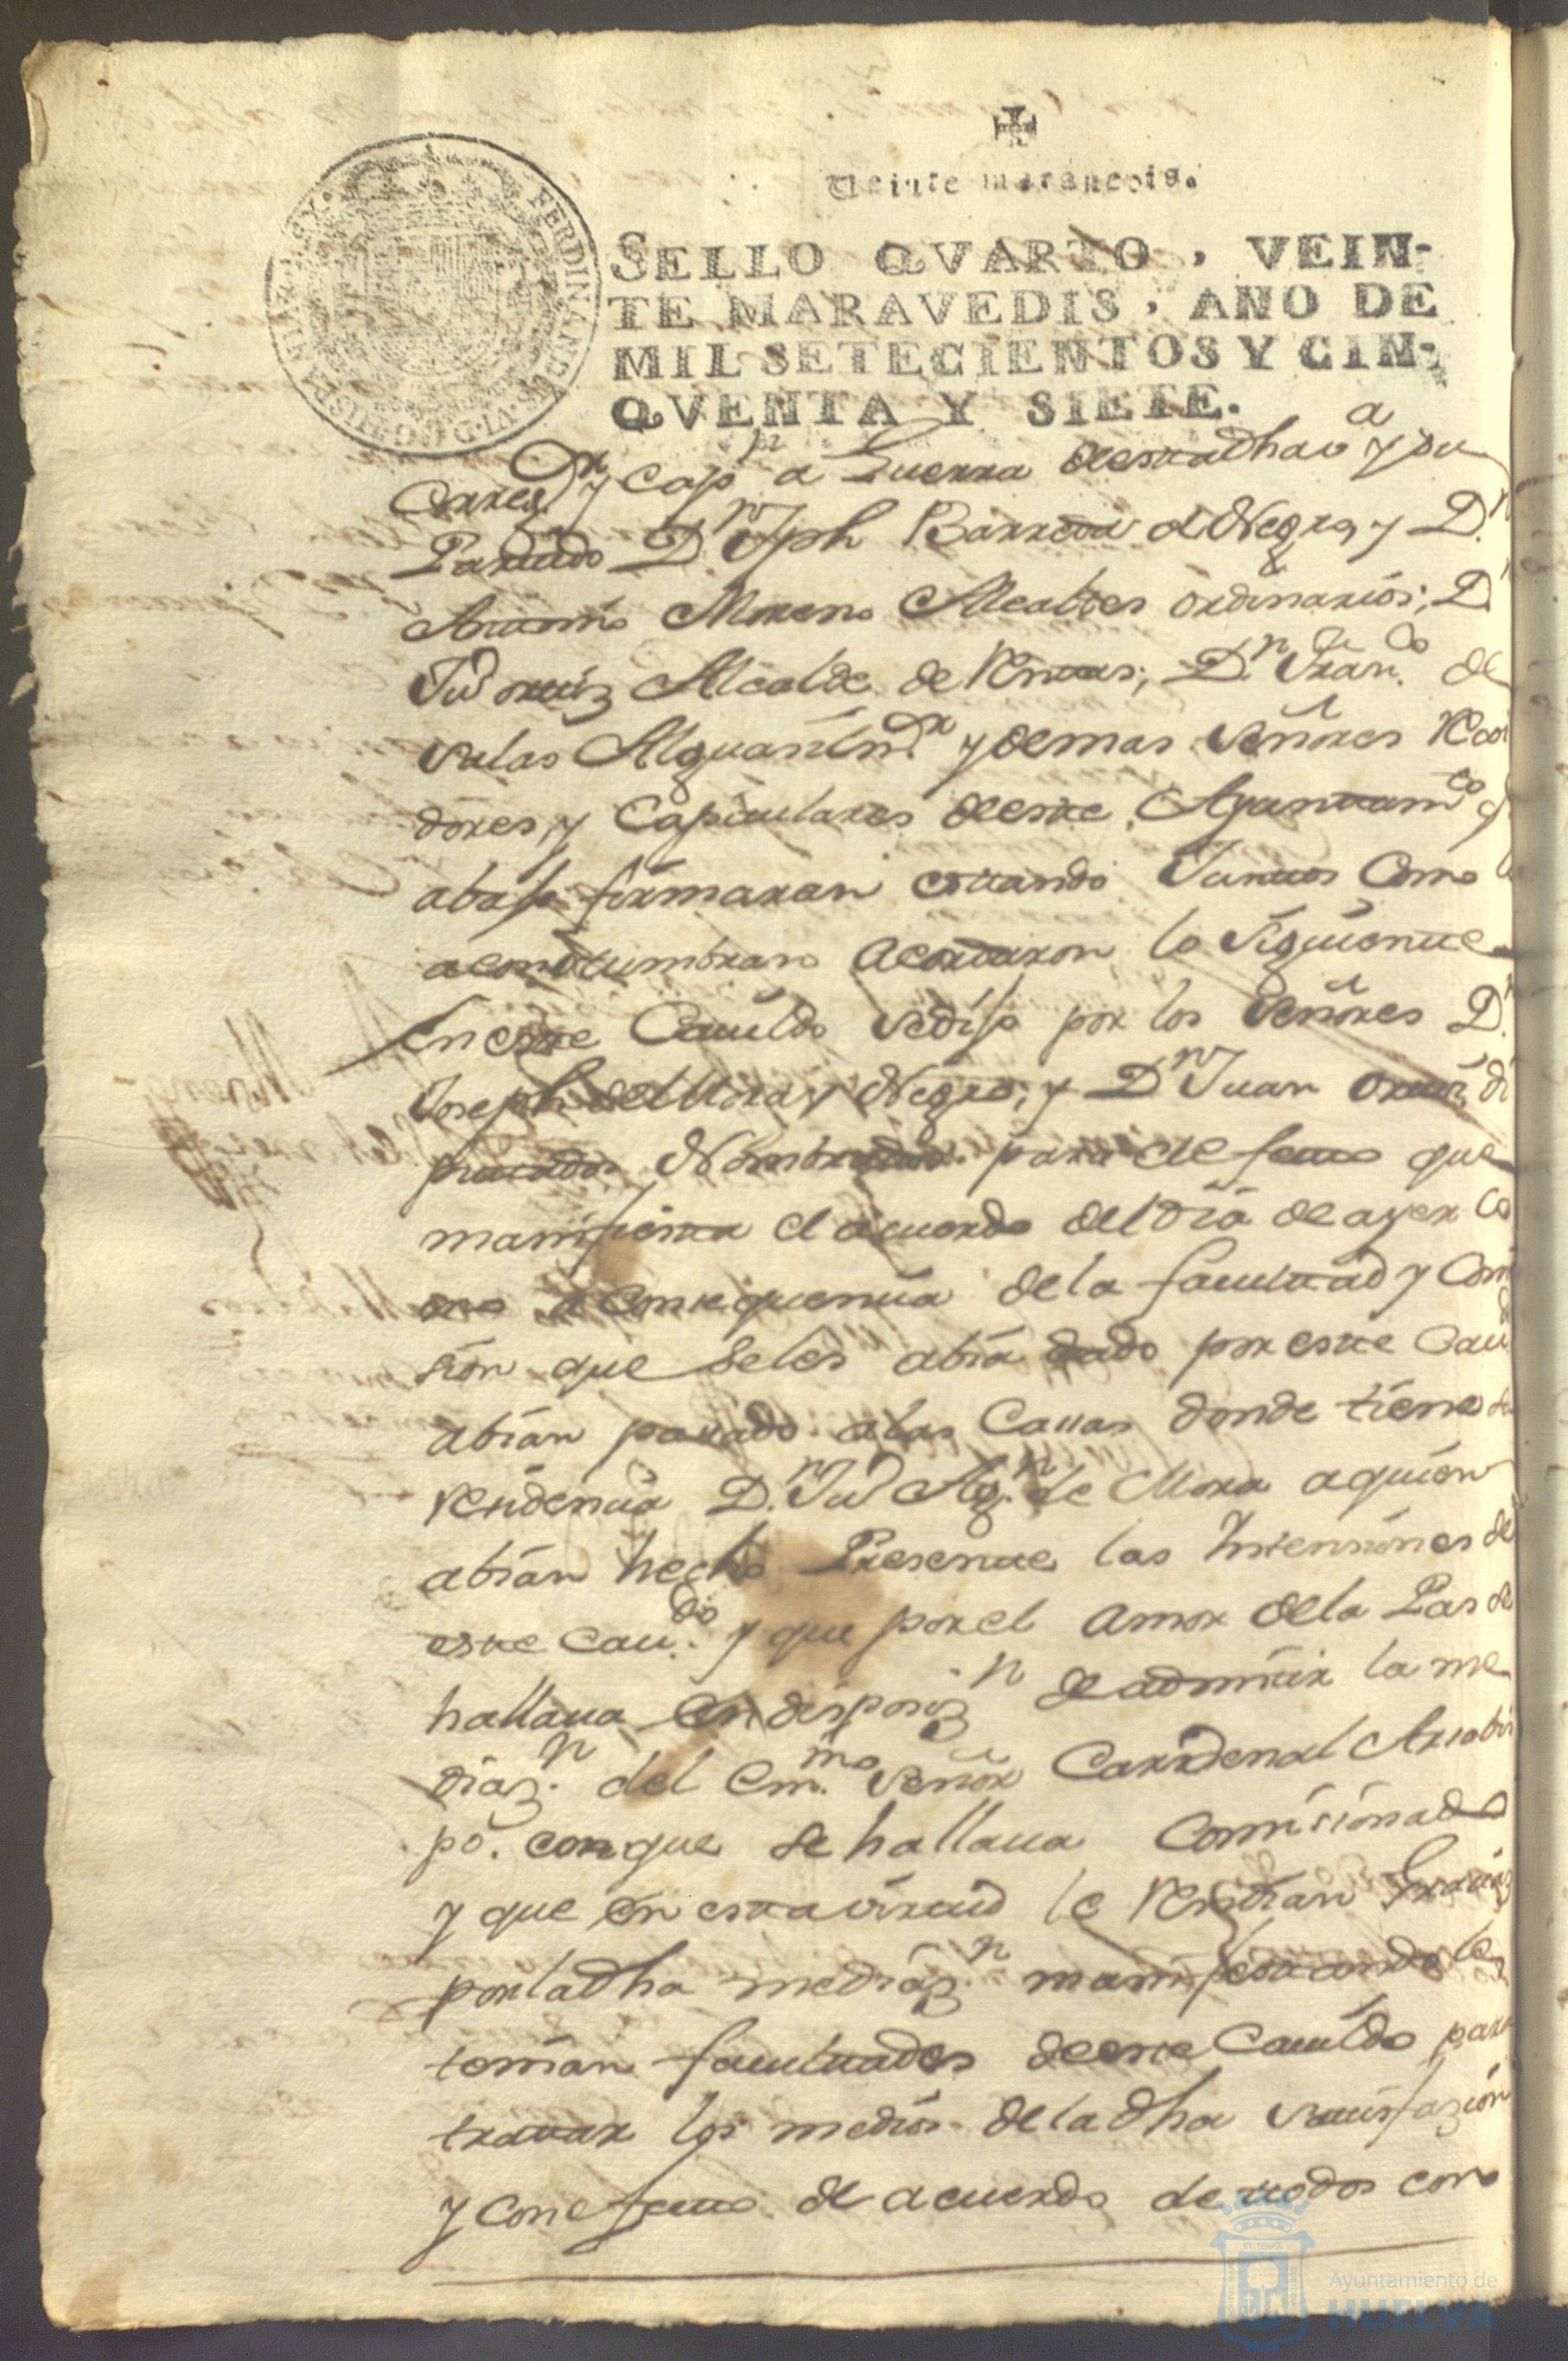 Veinte maravedis.
FERDINANDUS·VI·D·G·HISPANIAR·REX·
SELLO QVARTO, VEIN-
TE MARAVEDIS, AÑO DE
MIL SETECIENTOS Y CIN-
QVENTA Y SIETE.
Corregor y Capn a Guerra destadha va y su
Partido Dn Jph Barreda el Negro, y Dn
Antonio Moreno Alcaldes ordinarios; Dn
Jud ortiz Alcalde de Rentas; Dn Franco de
salas Alguasil mr y demas señores Regi
dores, y Capitulares deeste Ayuntamto q
abaso firmaran estando Juntos Como lo
acostumbran acordaron lo siguiente
En este Cauildo sediso por los señores Dn
Joseph de Mora y Negro; y Dn Juan ortiz di
putados Nombrados para el efecto que
manifiesta el acuerdo del dia de ayer Co
mo a Consequensia de la facultad y Comi
sion que seles abia dado por este Cauo
abian pasado alas Casas donde tiene su
residensia Dn Jud Agn de Mora aquien
abian hecho Presente las Intensiones de
este Caudo y que por el amor dela Pas se
hallaua en disposizn de admitir la me
diazn del Emmo señor Carrdenal Arzobis
po. conque se hallaua Comisionado
y que en esta virtud le rendian Gracias
por la dha mediazn manifestandole
tenian facultades deeste Cauildo para
tratar los medios de la dha satisfazion
y con efecto de acuerdo de todos con
Ayuntamiento de
HUELVA